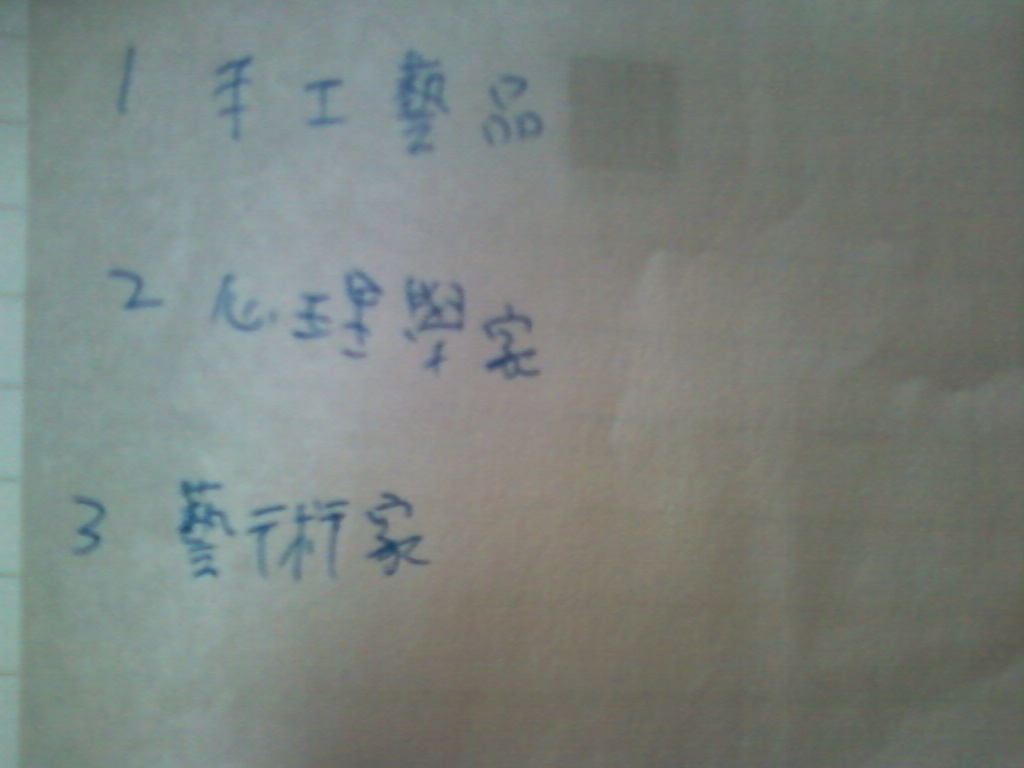 1 手工藝品
2 心理學家
3 藝術家